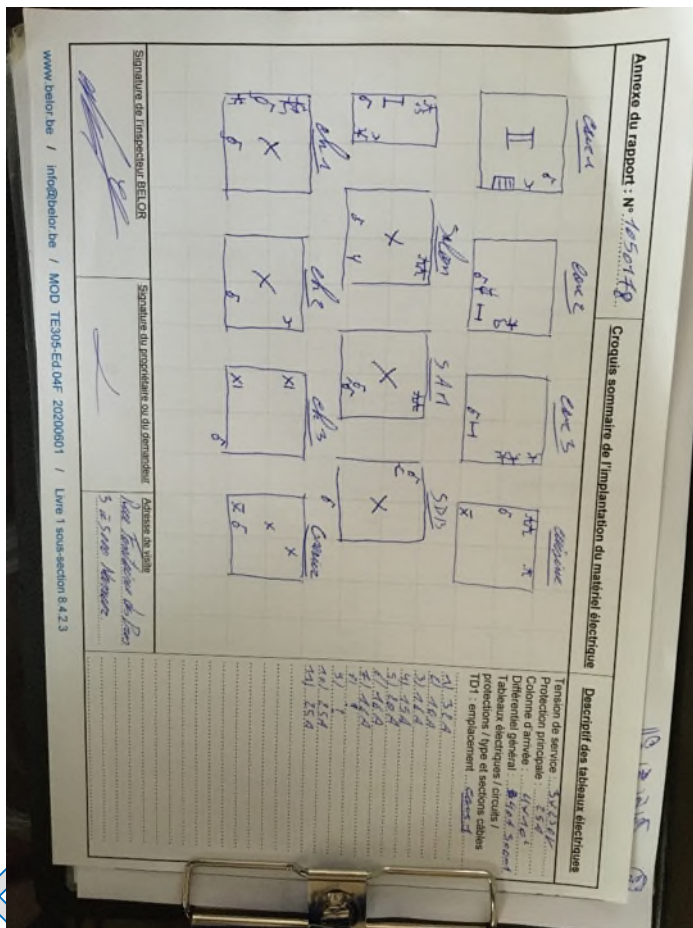 Annexe du rapport : N° 1050178
Croquis sommaire de l'implantation du matériel électrique
Descriptif des tableaux électriques
cave 1
cave 2
cave 3
cuisine
Salon
SAM
SDB
ch 1
ch 2
ch 3
Tension de service : 3x230V
Protection principale : 25A
Colonne d'arrivée : 4x10²
Différentiel général : 40A 300mA
Tableaux électriques / circuits /
protections / type et sections câbles
TD1 : emplacement cave 1
1) 32A
2) 16A
3) 16A
4) 15A
5) 20A
6) 16A
7) 16A
9) ?
10) 25A
11) 25A
Signature de l'inspecteur BELOR
Signature du propriétaire ou du demandeur
Adresse de visite
Rue
3 à 5100 Namur
www.belor.be / info@belor.be / MOD TE305-Ed.04F 20200601 / Livre 1 sous-section 8.4.2.3